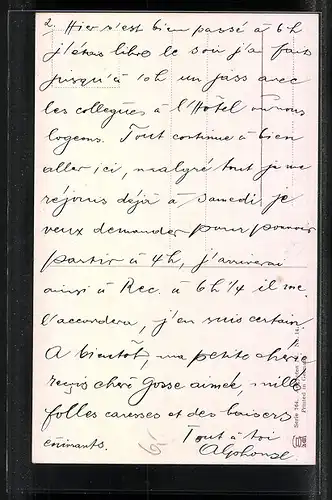 2. Hier s'est bien passé à 6h
j'étais libre le soir j'ai fait
jusqu'à 10h un jass avec
les collegues à l'Hôtel où nous
logeons. Tout continue à bien
aller ici, malgré tout je me
réjouis déjà à samedi je
veux demander pour pouvoir
partir à 4h, j'arriverai
ainsi à Rec. à 6h 1/4 il me
l'accordera, j'en suis certain
A bientôt, ma petite chérie
reçois chère Gosse aimée, mille
folles caresses et des baisers
Tout à toi
Alphonse
Serie 744.
Printed in